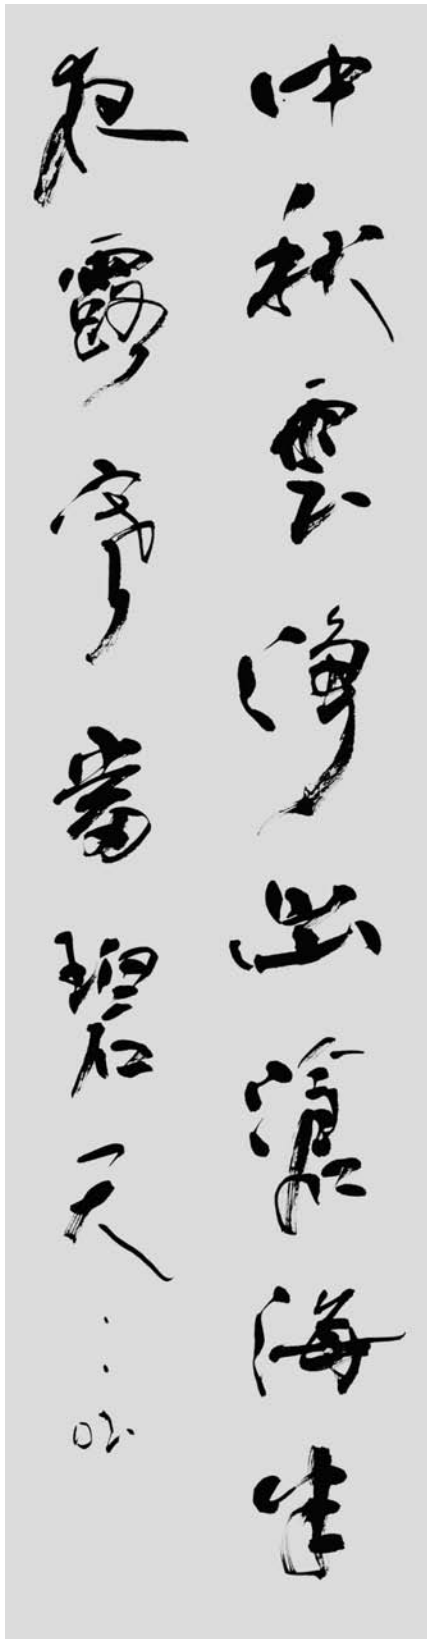 中秋雲淨出滄海半
夜露寒當碧天